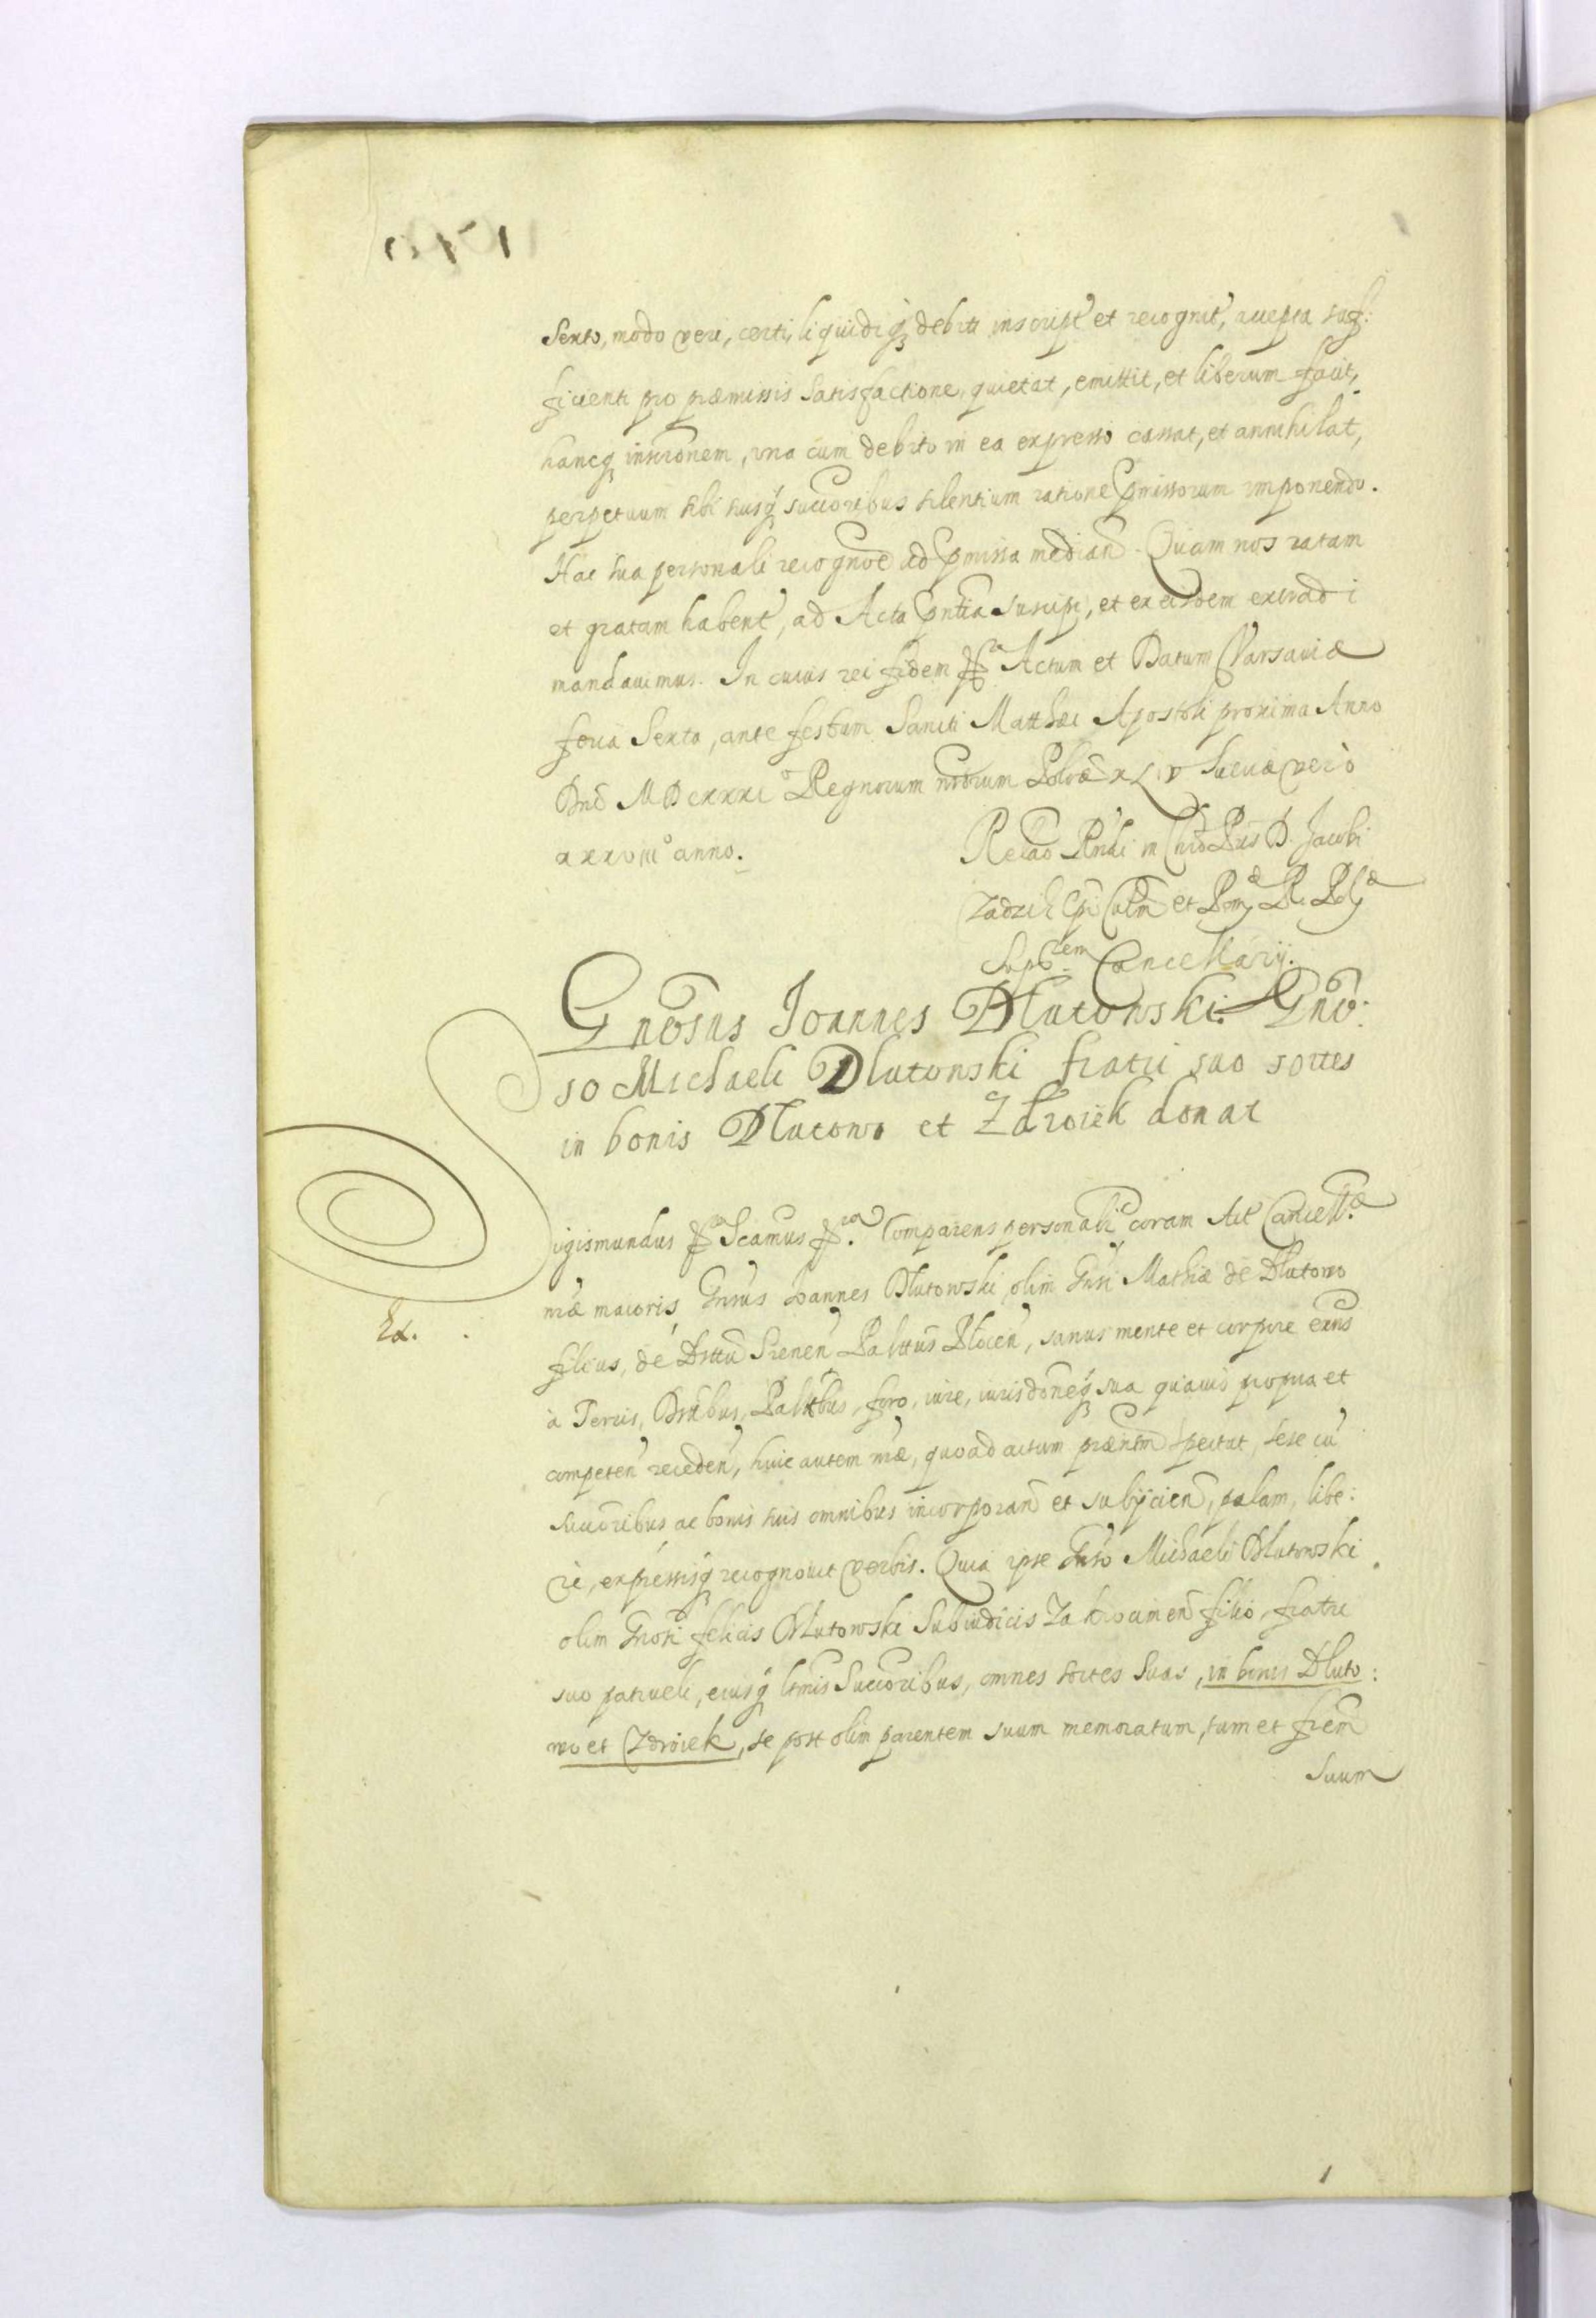 Sexto, modo veri, certi, liquidiq₃ debiti inscript̃ et recognit̃, accepta suf:
ficienti pro præmissis satisfactione, quietat, emittit, et liberum facit,
hancq₃ inscrõnem, vna cum debito in ea expresso cassat, et annihilat,
perpetuum sibi suisq₃ succoribus silentium ratione pmissorum imponendo.
Hac sua personali recognõe ad pmissa median̄. Quam nos ratam
et gratam haben̄t, ad Acta pn̄tia suscipi, et ex eisdem extradi
mandauimus. In cuius rei fidem Actum et Datum Varsauiæ
feria Sexta, ante festum Sancti Matthæi Apostoli proxima Anno
Dn̄i MDCXXXI° Regnorum nr̄orum Polõæ XLIV Sueuiæ verò
XXXVIII° anno.
Relão Rndi in Chrõ Pris D. Jacobi
Zadzik Epi Culm̄ et Pom̄
Supr̄em Cancellarij.
Gnõsus Joannes Dlutowski Gnõ:
so Michaeli Dlutowski fratri suo sortes
in bonis Dlutowo et Zdroiek donat
Sigismundus Scāmus Comparens personalr̄ coram Act̄ Cancellæ
nr̄æ maioris, Gnr̄sus Joannes Dlutowski, olim Gnr̄si Mathiæ de Dlutowo
Ex.
filius, de Dr̄ttu Srenen̄ Palttūs Plocen̄, sanus mente et corpore exn̄s
à Terris, Dr̄ttbus, Palttbus, foro, iure, iurisdōneq₃ sua quauis propria et
competen̄ receden̄, huic autem nr̄æ, quo ad actum præn̄tm spectat, sese cū
succoribus ac bonis suis omnibus incorporan̄ et subijcien̄, palam, libe:
rè, expressisq₃ recognouit verbis. Quia ipse Gnr̄so Michaeli Dlutowski
olim Gnosi felicis Dlutowski Subiudicis Zakrocimen̄ filio, fratri
suo patrueli, eiusq₃ ltmis Succoribus, omnes sortes suas, in bonis Dluto:
wo et Zdroiek, se post olim parentem suum memoratum, tum et frēm
Suum